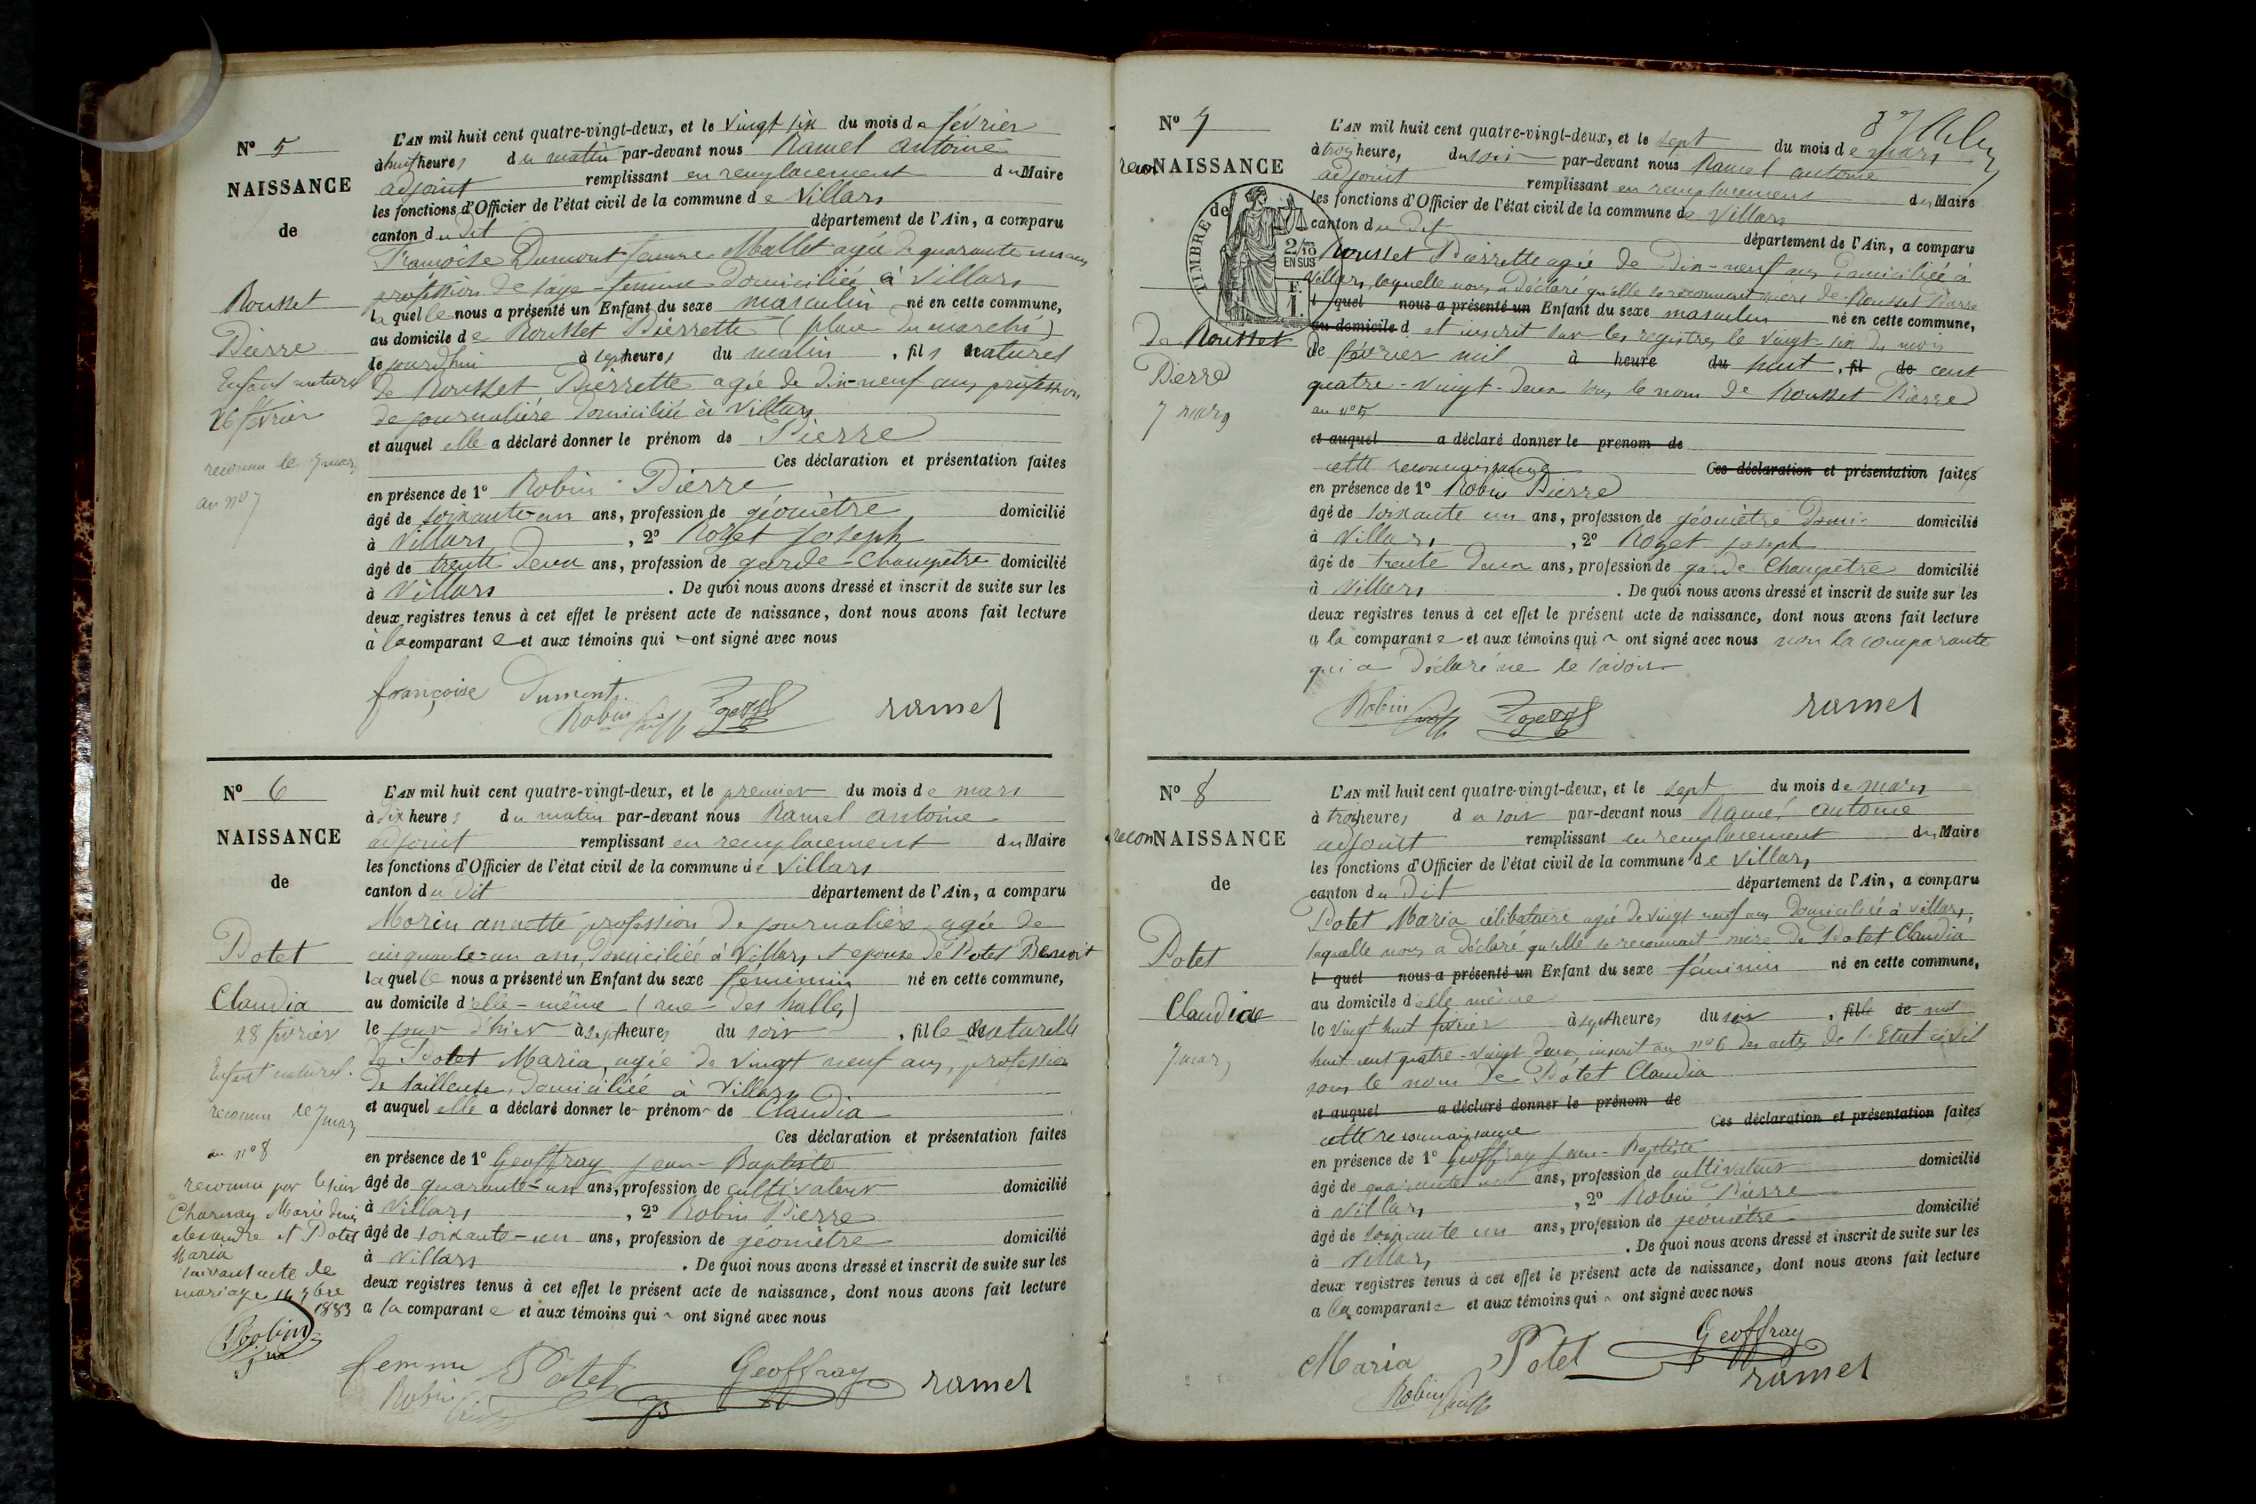 N° 5
NAISSANCE
de
Rousset
Pierre
Enfant naturel
26 février
reconnu le 7 mars
au n° 7
L'AN mil huit cent quatre-vingt-deux, et le vingt six du mois de février
à huit heures du matin par-devant nous Ramel antoine
adjoint remplissant en remplacement du Maire
les fonctions d'Officier de l'état civil de la commune de Villars
canton du dit département de l'Ain, a comparu
Françoise Dumont femme Mallet agée de quarante un ans
profession de sage-femme domiciliée à Villars
laquelle nous a présenté un Enfant du sexe masculin né en cette commune,
au domicile de Rousset Pierrette (place du marché)
le jourdhui à sept heures du matin, fils naturel
de Rousset Pierrette agée de dix-neuf ans profession
de journalière domiciliée à Villars
et auquel elle a déclaré donner le prénom de Pierre
Ces déclaration et présentation faites
en présence de 1° Robin Pierre
âgé de soixante-un ans, profession de géomètre domicilié
à Villars, 2° Roget Joseph
âgé de trente deux ans, profession de garde-Champêtre domicilié
à Villars. De quoi nous avons dressé et inscrit de suite sur les
deux registres tenus à cet effet le présent acte de naissance, dont nous avons fait lecture
à la comparante et aux témoins qui ont signé avec nous
françoise Dumont
Robin Roget ramel
N° 6
NAISSANCE
de
Potet
Claudia
28 février
Enfant naturel.
reconnu le 7 mars
au n° 8
reconnu par le sieur
Charnay Marie denis
alexandre et Potet
Maria
suivant acte de
mariage 14 9bre
1883
Robin
L'AN mil huit cent quatre-vingt-deux, et le premier du mois de mars
à dix heures du matin par-devant nous Ramel antoine
adjoint remplissant en remplacement du Maire
les fonctions d'Officier de l'état civil de la commune de Villars
canton du dit département de l'Ain, a comparu
Morin annette profession de journalière agée de
cinquante-un ans, domiciliée à Villars et epouse de Potet Benoit
laquelle nous a présenté un Enfant du sexe féminin né en cette commune,
au domicile d'elle-même (rue des halles)
le jour d'hier à sept heures du soir, fille naturelle
de Potet Maria, agée de vingt neuf ans, profession
de tailleuse, domiciliée à Villars
et auquel elle a déclaré donner le prénom de Claudia
Ces déclaration et présentation faites
en présence de 1° Geoffray Jean-Baptiste
âgé de quarante-un ans, profession de cultivateur domicilié
à Villars, 2° Robin Pierre
âgé de soixante-un ans, profession de géomètre domicilié
à Villars. De quoi nous avons dressé et inscrit de suite sur les
deux registres tenus à cet effet le présent acte de naissance, dont nous avons fait lecture
a la comparante et aux témoins qui ont signé avec nous
femme Potet Geoffray ramel
Robin
N° 7
recon NAISSANCE
de
TIMBRE
2/10
EN SUS
1 F.
de Rousset
Pierre
7 mars
L'AN mil huit cent quatre-vingt-deux, et le sept du mois de mars
à trois heures du soir par-devant nous Ramel antoine
adjoint remplissant en remplacement du Maire
les fonctions d'Officier de l'état civil de la commune de Villars
canton du dit département de l'Ain, a comparu
Rousset Pierrette agée de dix-neuf ans domiciliée à
Villars, laquelle nous a déclaré qu'elle se reconnait mère de Rousset Pierre
l quel nous a présenté un Enfant du sexe masculin né en cette commune,
au domicile d et inscrit sur les registres le vingt-six du mois
de février mil à heure du huit, fil de cent
quatre-vingt-deux sous le nom de Rousset Pierre
au n° 5
et auquel a déclaré donner le prenom de
cette reconnaissance Ces déclaration et présentation faites
en présence de 1° Robin Pierre
âgé de soixante un ans, profession de géomètre domi- domicilié
à Villars, 2° Roget Joseph
âgé de trente deux ans, profession de garde Champêtre domicilié
à Villars. De quoi nous avons dressé et inscrit de suite sur les
deux registres tenus à cet effet le présent acte de naissance, dont nous avons fait lecture
a la comparante et aux témoins qui ont signé avec nous non la comparante
qui a déclaré ne le savoir
Robin Roget ramel
N° 8
recon NAISSANCE
de
Potet
Claudia
7 mars
L'AN mil huit cent quatre-vingt-deux, et le sept du mois de mars
à trois heures du soir par-devant nous Ramel antoine
adjoint remplissant en remplacement du Maire
les fonctions d'Officier de l'état civil de la commune de Villars
canton du dit département de l'Ain, a comparu
Potet Maria célibataire agée de vingt neuf ans domiciliée à Villars,
laquelle nous a déclaré qu'elle se reconnait mère de Potet Claudia
l quel nous a présenté un Enfant du sexe féminin né en cette commune,
au domicile d'elle même
le vingt huit février à sept heures du soir, fille de mil
huit cent quatre-vingt deux inscrit au n° 6 des actes de l'Etat civil
sous le nom de Potet Claudia
et auquel a déclaré donner le prénom de
cette reconnaissance Ces déclaration et présentation faites
en présence de 1° Geoffray Jean-Baptiste
âgé de quarante un ans, profession de cultivateur domicilié
à Villars, 2° Robin Pierre
âgé de soixante un ans, profession de géomètre domicilié
à Villars. De quoi nous avons dressé et inscrit de suite sur les
deux registres tenus à cet effet le présent acte de naissance, dont nous avons fait lecture
a la comparante et aux témoins qui ont signé avec nous
Maria Potet Geoffray
Robin ramel